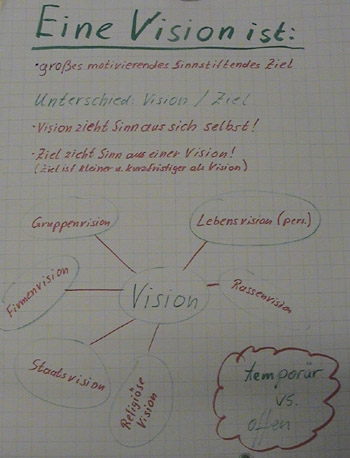 Eine Vision ist:
• großes motivierendes Sinnstiftendes Ziel
Unterschied: Vision / Ziel
- Vision zieht Sinn aus sich selbst!
- Ziel zieht Sinn aus einer Vision!
(Ziel ist kleiner u. kurzfristiger als Vision)
Gruppenvision
Lebensvision (pers.)
Firmenvision
Vision
Rassenvision
Staatsvision
Religiöse
Vision
temporär
vs.
offen